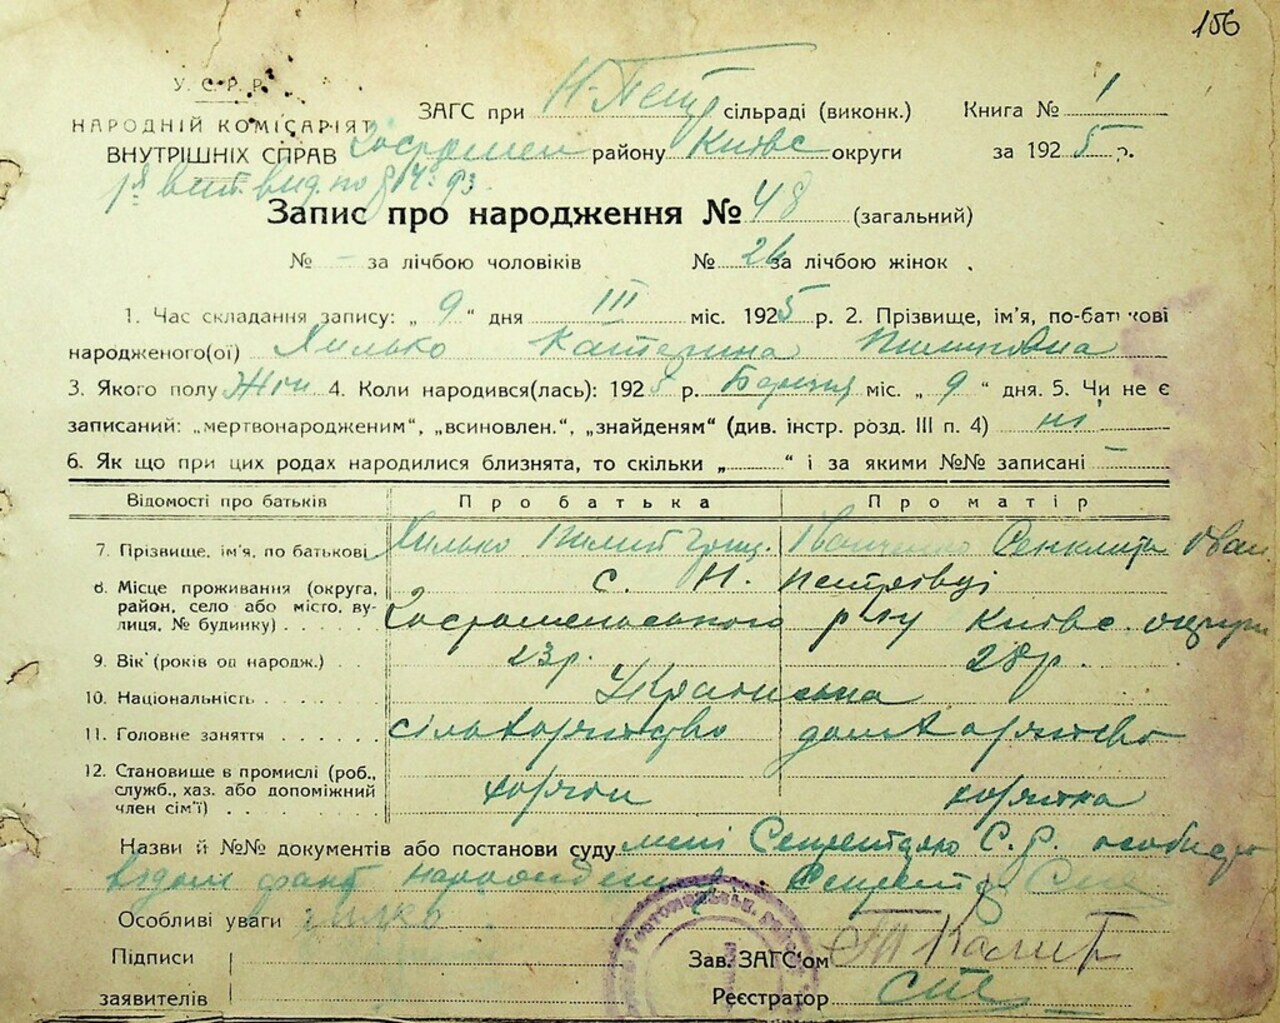 156
У. С. Р. Р.
НАРОДНІЙ КОМІСАРІЯТ
ВНУТРІШНІХ СПРАВ
ЗАГС при Н-Петр сільраді (виконк.) Книга № 1
Гостомел району Київс округи за 1925 р.
Запис про народження № 48 (загальний)
№ - за лічбою чоловіків № 26 за лічбою жінок .
1. Час складання запису: „ 9 “ дня III міс. 1925 р. 2. Прізвище, ім'я, по-батькові
народженого(ої) Хилько Катерина Пилиповна
3. Якого полу Жін 4. Коли народився(лась): 1925 р. Березня міс. „ 9 “ дня. 5. Чи не є
записаний: „мертвонародженим“, „всиновлен.“, „знайденям“ (див. інстр. розд. III п. 4) ні
6. Як що при цих родах народилися близнята, то скільки „ “ і за якими №№ записані -
Відомості про батьків Про батька Про матір
7. Прізвище, ім'я, по батькові Хилько Пилип Іванченко Секлита Іван
8. Місце проживання (округа, район, село або місто, вулиця, № будинку) с. Н. Петрівці
Гостомельського р-ну Київс. округи
9. Вік (років од народж.) 23р. 28р.
10. Національність Українська
11. Головне заняття сільхазяйство домхазяйство
12. Становище в промислі (роб., служб., хаз. або допоміжний член сім'ї) хазяїн хазяйка
Назви й №№ документів або постанови суду мені Секретарю С. Р. особисто
відом факт народження Секретар
Особливі уваги Хилко
Підписи
заявителів
Зав. ЗАГС'ом
Реєстратор